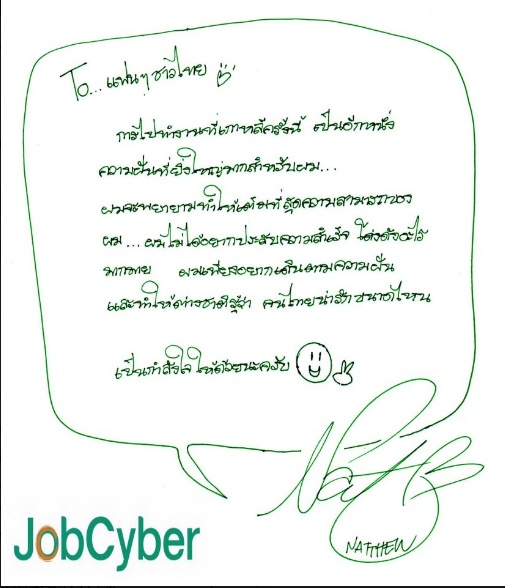 To... แฟนๆ ชาวไทย
การไปทำงานที่เกาหลีครั้งนี้ เป็นอีกหนึ่ง
ความฝันที่ยิ่งใหญ่มากสำหรับผม...
ผมจะพยายามทำให้เต็มที่สุดความสามารถของ
ผม... ผมไม่ได้อยากประสบความสำเร็จ โด่งดังอะไร
มากมาย ผมเพียงอยากเดินตามความฝัน
และทำให้ต่างชาติรู้ว่า คนไทยน่ารักขนาดไหน
เป็นกำลังใจให้ด้วยนะครับ
NATTHEW
JobCyber